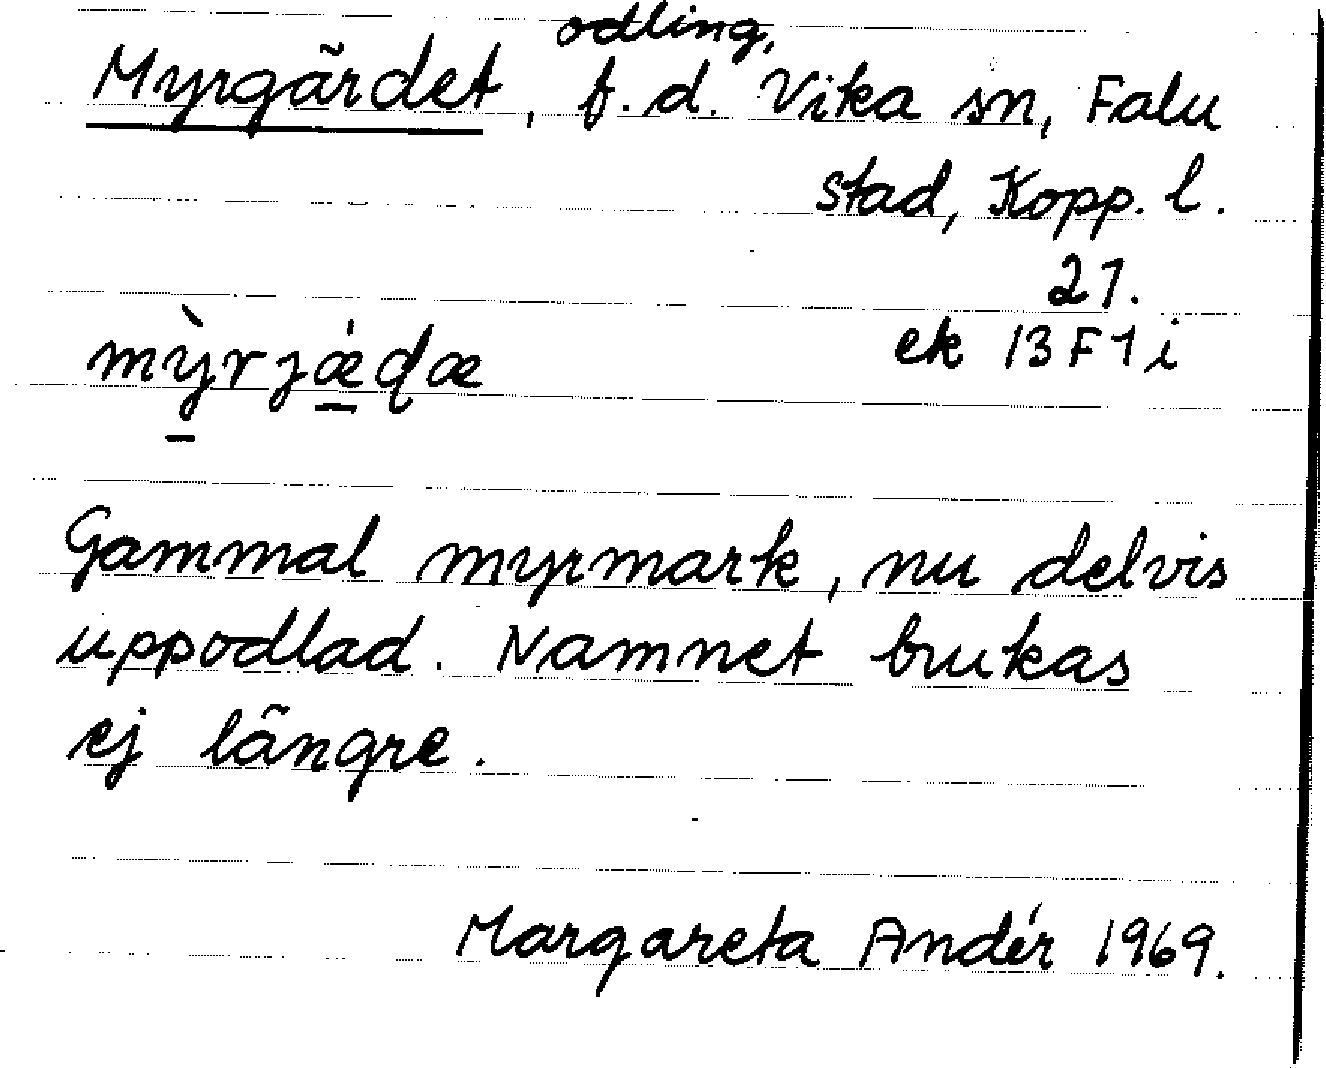 odling,
Myrgärdet, f.d. Vika sn, Falu
stad, Kopp. l.
21.
ek 13 F 1 i
Gammal myrmark, nu delvis
uppodlad. Namnet brukas
ej längre.
Margareta Andér 1969.